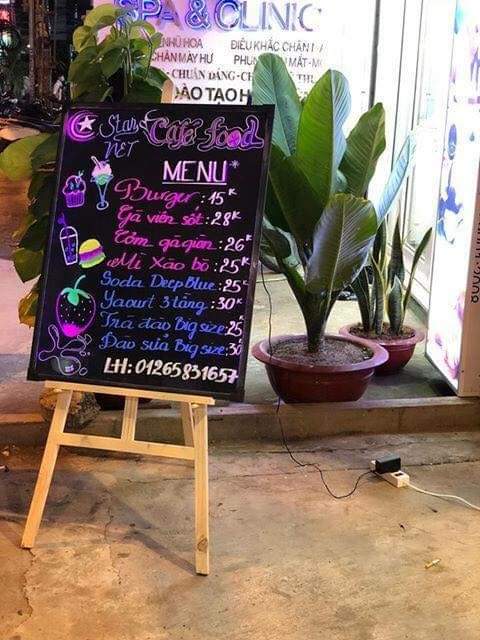 SPA & CLINIC
ĐIÊU KHẮC CHÂN
CHÂN MÀY HƯ
CHUẨN DÁNG
ĐÀO TẠO H
Star NET
Café food
MENU
Burger : 15K
Gà viên sốt : 28K
Cơm gà giòn : 26K
Mì Xào bò : 25K
Soda Deep Blue : 25K
Yaourt 3 tầng : 30K
Trà đào Big size : 25
Đào sữa Big size : 30
LH: 01265831657